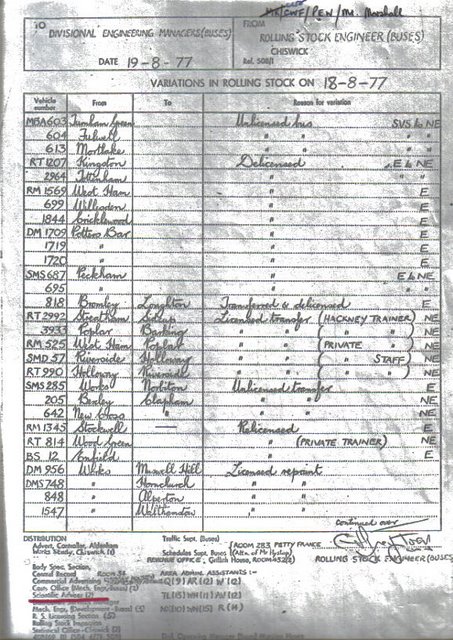 MR/CWF/PEN/Mr. Marshall
TO DIVISIONAL ENGINEERING MANAGERS (BUSES)
DATE 19-8-77
FROM ROLLING STOCK ENGINEER (BUSES)
CHISWICK
Ref. 508/1
VARIATIONS IN ROLLING STOCK ON 18-8-77
Vehicle number From To Reason for variation
MBA 603 Turnham Green Unlicensed bus SVS to NE
604 Fulwell " " " "
613 Mortlake " " " "
RT 1207 Kingston Delicensed E to NE
2964 Tottenham " " "
RM 1569 West Ham " E
699 Willesden " E
1844 Cricklewood " E
DM 1709 Potters Bar " E
1719 " " E
1720 " " E
SMS 687 Peckham " E to NE
695 " " " "
818 Bromley Loughton Transferred & delicensed E
RT 2992 Streatham Sidcup Licensed transfer (HACKNEY TRAINER) NE
3933 Poplar Barking " " ( " " ) NE
RM 525 West Ham Poplar " " (PRIVATE " ) NE
SMD 57 Riverside Holloway " " ( " STAFF ) NE
RT 990 Holloway Riverside " " ( " " ) NE
SMS 285 Works Norbiton Unlicensed transfer E
205 Bexley Clapham " " NE
642 New Cross " " " NE
RM 1345 Stockwell — Relicensed E
RT 814 Wood Green " (PRIVATE TRAINER) NE
BS 12 Enfield " E
DM 956 Works Muswell Hill Licensed repaint
DMS 748 " Hornchurch " "
848 " Alperton " "
1547 " Walthamstow " "
continued over
DISTRIBUTION
Advert. Controller, Aldenham
Works Study, Chiswick (1)
Traffic Supt. (Buses)
Schedules Supt. Buses (Attn. of Mr Hyslop)
ROOM 283 PETTY FRANCE
ROLLING STOCK ENGINEER (BUSES)
Body Spec. Section,
Central Record
Commercial Advertising
Cars Office (Mech. Eng. Buses) (2)
Scientific Adviser (2)
AREA ADMIN. ASSISTANTS :-
Q (9) AR (12) W (12)
Mech. Eng. (Development-Buses)
R. S. Licensing Section
Rolling Stock Inspection